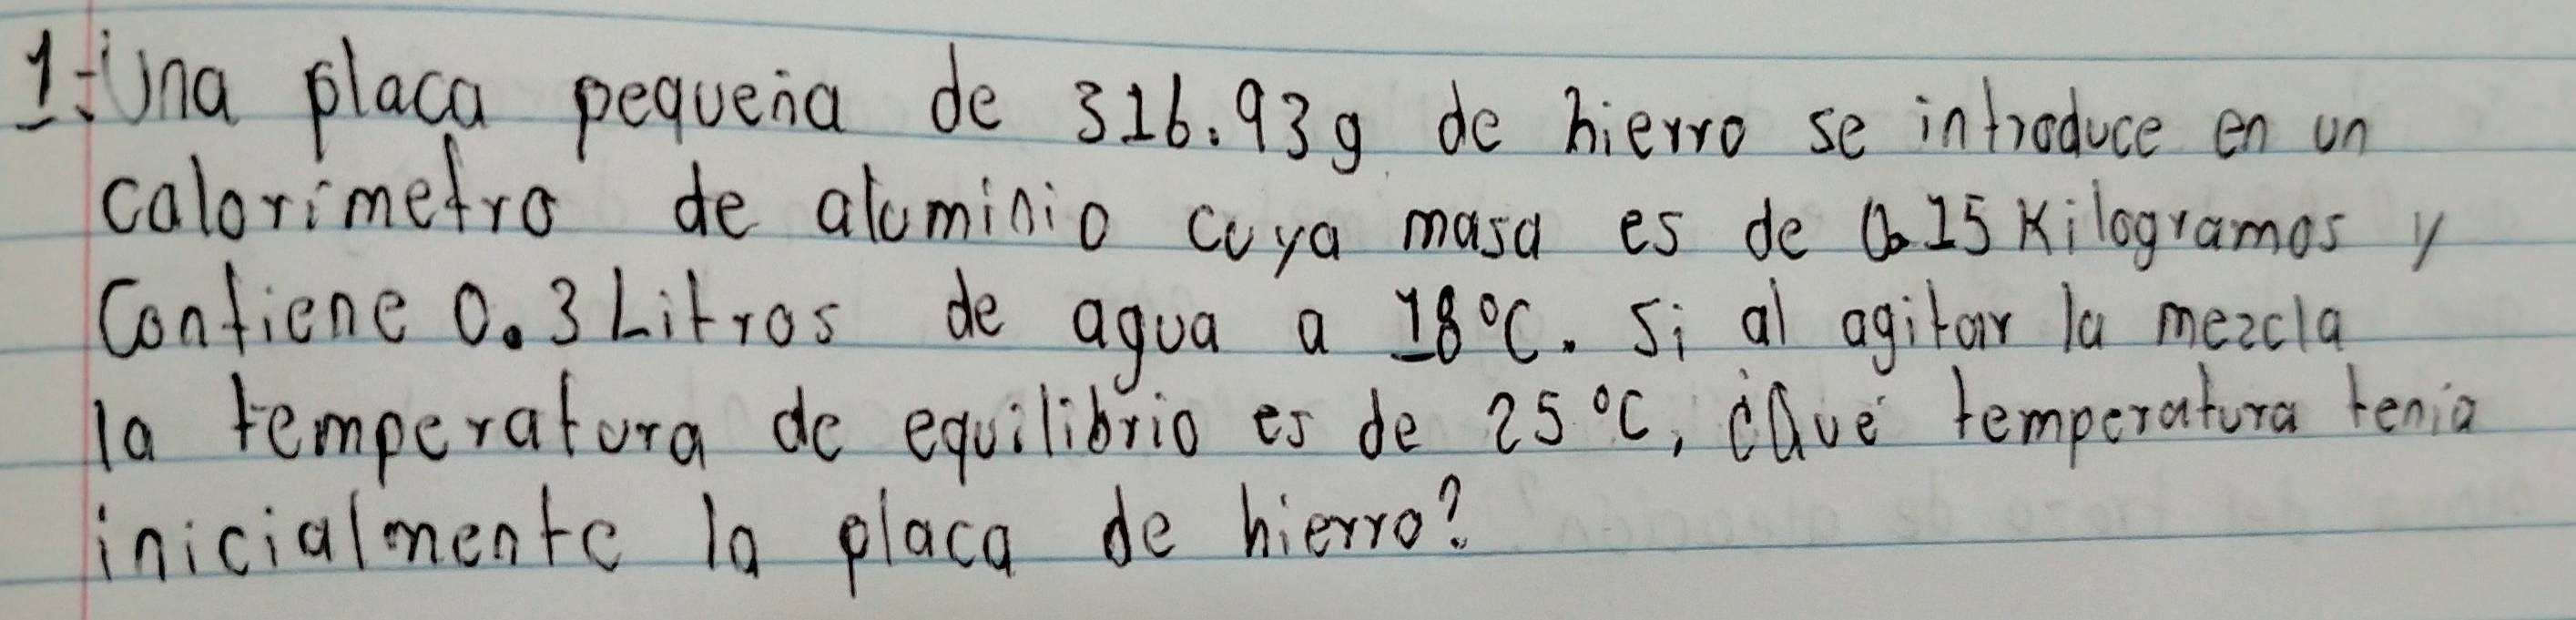 1-Una placa pequeña de 316.93g de hierro se introduce en un
calorimetro de aluminio cuya masa es de 0.15 Kilogramos y
Contiene 0.3 Litros de agua a 18°C. Si al agitar la mezcla
la temperatura de equilibrio es de 25°C, ¿Qué temperatura tenia
inicialmente la placa de hierro?